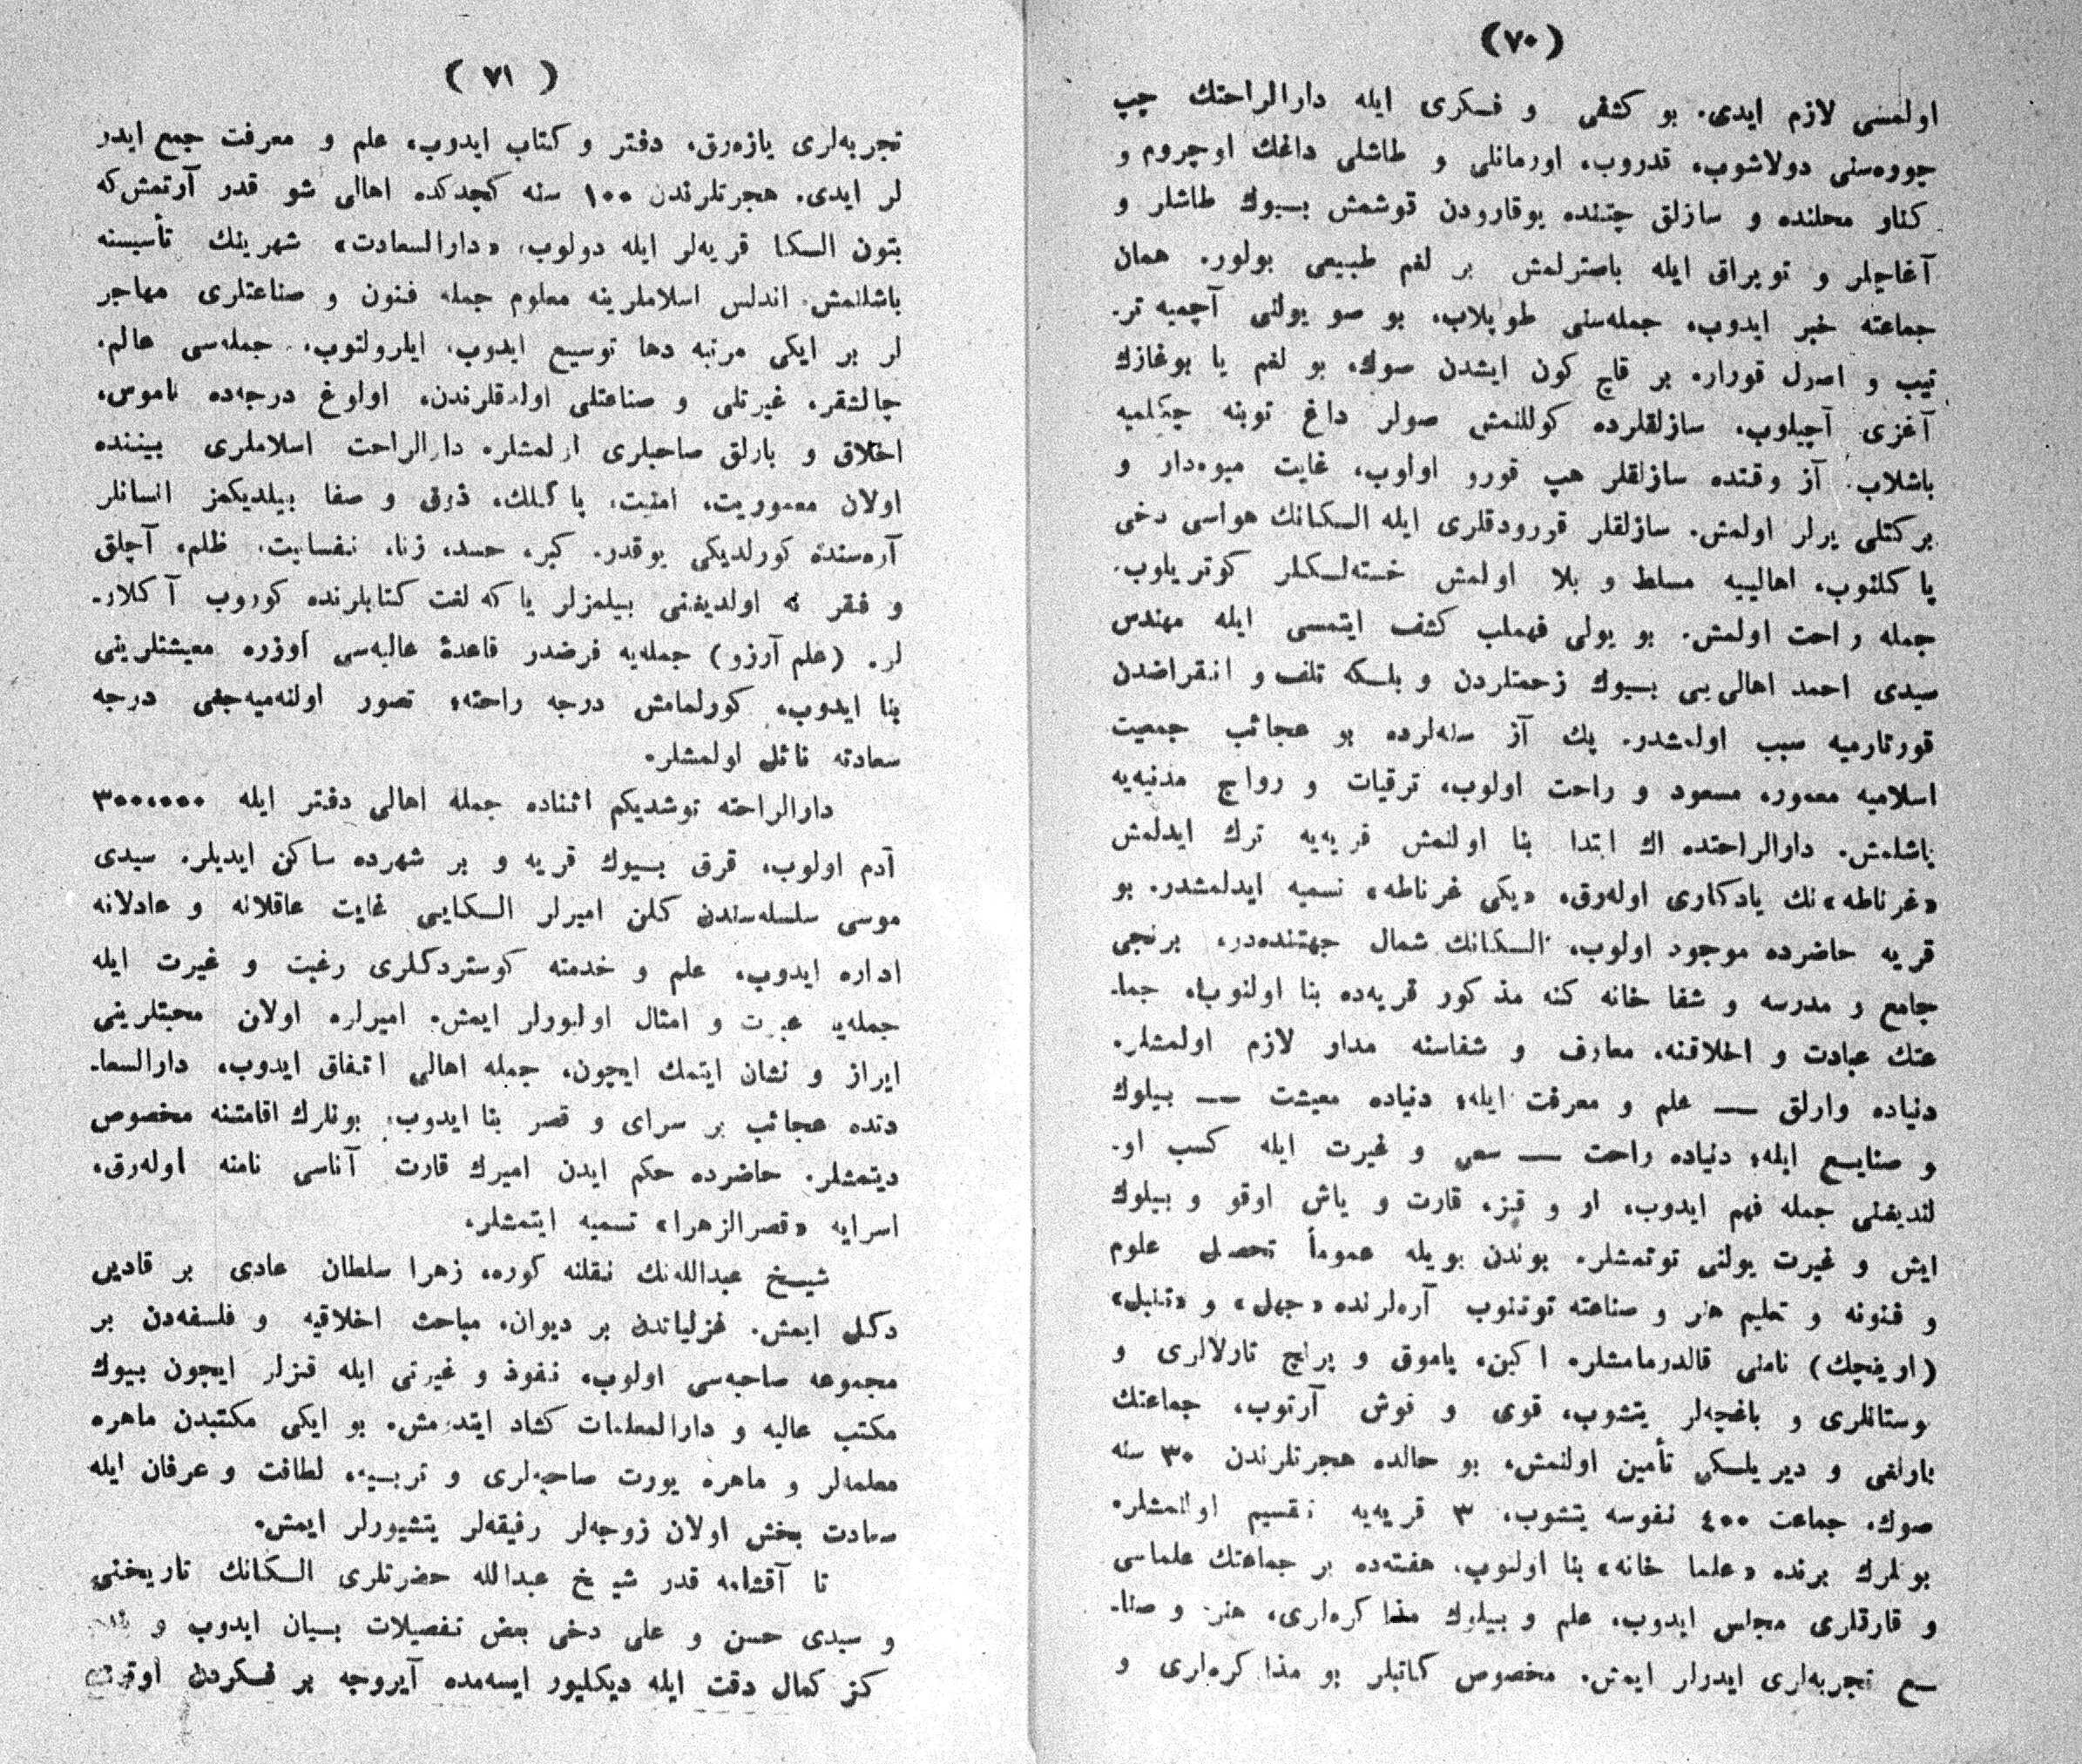 (٧٠)
اولمسی لازم ایدی. بو كشفی و فسكری ایله دارالراحتك چپ
چووه‌سنی دولاشوب، قدروب، اورمانلی و طاشلی داغك اوچروم و
كنار محلنده و سازلق چتنده یوقارودن قوشمش بسیوك طاشلر و
آغاچلر و توپراق ایله باصترلمش بر لغم طبیعی بولور. همان
جماعته خبر ایدوب، جمله‌سنی طوپلاب، بو صو یولنی آچمیه تر-
تیب و اصول قورار. بر قاچ كون ایشدن صوك، بو لغم یا بوغازك
آغزی آچیلوب، سازلقلرده كوللنمش صولر داغ توبنه چكلمیه
باشلاب. آز وقتده سازلقلر هپ قورو اولوب، غایت میوه‌دار و
بركتلی یرلر اولمش. سازلقلر قورودقلری ایله السكانك هواسی دخی
پاكلنوب، اهالییه مسلط و بلا اولمش خسته‌لسكلر كوتریلوب،
جمله راحت اولمش. بو یولی فهملب كشف ایتمسی ایله مهندس
سیدی احمد اهالی‌یی بسیوك زحمتلردن و بلسكه تلف و انقراضدن
قورتارمیه سبب اولمشدر. پك آز سنه‌لرده بو عجائب جمعیت
اسلامیه معمور، مسعود و راحت اولوب، ترقیات و رواج مدنیه‌یه
باشلمش. دارالراحتده اك ابتدا بنا اولنمش قریه‌یه ترك ایدلمش
«غرناطه»نك یادكاری اوله‌رق، «یكی غرناطه» تسمیه ایدلمشدر. بو
قریه حاضرده موجود اولوب، السكانك شمال جهتنده‌در، برنجی
جامع و مدرسه و شفا خانه كنه مذكور قریه‌ده بنا اولنوب، جما-
عتك عبادت و اخلاقنه، معارف و شفاسنه مدار لازم اولمشلر.
دنیاده وارلق — علم و معرفت ایله؛ دنیاده معیشت — بیلوك
و صنایع ایله؛ دنیاده راحت — سعی و غیرت ایله كسب او-
لندیغنی جمله فهم ایدوب، ار و قیز، قارت و یاش اوقو و بیلوك
ایش و غیرت یولنی توتمشلر. بوندن بویله عموماً تحصیل علوم
و فنونه و تعلیم هنر و صناعته توتنوب آره‌لرنده «جهل» و «تنبل»
(ارینچك) نامنی قالدرمامشلر. اكین، پاموق و پرنچ تارلالری و
بوستانلری و باغچه‌لر یتشوب، قوی و قوش آرتوب، جماعتك
بارلغی و دیریلسكی تأمین اولنمش، بو حالده هجرتلرندن ٣٠ سنه
صوك، جماعت ٤٠٠ نفوسه یتشوب، ٣ قریه‌یه تقسیم اولنمشلر.
بونلرك برنده «علما خانه» بنا اولنوب، هفته‌ده بر جماعتك علماسی
و قارتلری مجلس ایدوب، علم و بیلوك مذاكره‌لری، هنر و صنا-
یع تجربه‌لری ایدرلر ایمش. مخصوص كاتبلر بو مذاكره‌لری و
(٧١)
تجربه‌لری یازه‌رق، دفتر و كتاب ایدوب، علم و معرفت جمع ایدر
لر ایدی. هجرتلرندن ١٠٠ سنه كچدكده اهالی شو قدر آرتمش‌كه
بتون السكا قریه‌لر ایله دولوب، «دارالسعادت» شهرینك تأسیسنه
باشلنمش. اندلس اسلاملرینه معلوم جمله فنون و صناعتلری مهاجر
لر بر ایكی مرتبه دها توسیع ایدوب، ایلرولتوب، جمله‌سی عالم،
چالشقر، غیرتلی و صناعتلی اولدقلرندن، اولوغ درجه‌ده ناموس،
اخلاق و بارلق صاحبلری اولمشلر. دارالراحت اسلاملری بیننده
اولان معموریت، امنیت، پاكلك، ذوق و صفا بیلدیكمز انسانلر
آره‌سنده كورلدیكی یوقدر. كبر، حسد، زنا، نفسانیت، ظلم، آچلق
و فقر نه اولدیغنی بیلمزلر یاكه لغت كتابلرنده كوروب آكلار-
لر. (علم آرزو) جمله‌یه فرضدر قاعدۀ عالیه‌سی اوزره معیشتلرینی
بنا ایدوب، كورلمامش درجه راحته؛ تصور اولنه‌میه‌جغی درجه
سعادته نائل اولمشلر.
دارالراحته توشدیكم اثناده جمله اهالی دفتر ایله ٣٠٠،٠٠٠
آدم اولوب، قرق بسیوك قریه و بر شهرده ساكن ایدیلر. سیدی
موسی سلسله‌سندن كلن امیرلر السكایی غایت عاقلانه و عادلانه
اداره ایدوب، علم و خدمته كوستردكلری رغبت و غیرت ایله
جمله‌یه عبرت و امثال اولیورلر ایمش. امیرلره اولان محبتلرینی
ابراز و نشان ایتمك ایچون، جمله اهالی اتفاق ایدوب، دارالسعا-
دتده عجائب بر سرای و قصر بنا ایدوب، بونلرك اقامتنه مخصوص
دیتمشلر. حاضرده حكم ایدن امیرك قارت آناسی نامنه اوله‌رق،
اسرایه «قصرالزهرا» تسمیه ایتمشلر.
شیخ عبدالله‌نك نقلنه كوره، زهرا سلطان عادی بر قادین
دكل ایمش. غزلیاتدن بر دیوان، مباحث اخلاقیه و فلسفه‌دن بر
مجموعه صاحبه‌سی اولوب، نفوذ و غیرتی ایله قیزلر ایچون بیوك
مكتب عالیه و دارالمعلمات كشاد ایتدرمش. بو ایكی مكتبدن ماهره
معلمه‌لر و ماهره یورت صاحبه‌لری و تربیه، لطافت و عرفان ایله
سعادت بخش اولان زوجه‌لر رفیقه‌لر یتشیورلر ایمش.
تا آقشامه قدر شیخ عبدالله حضرتلری السكانك تاریخنی
و سیدی حسن و علی دخی بعض تفصیلات بسیان ایدوب و
كز كمال دقت ایله دیكلیور ایسه‌مده آیروجه بر فسكردن